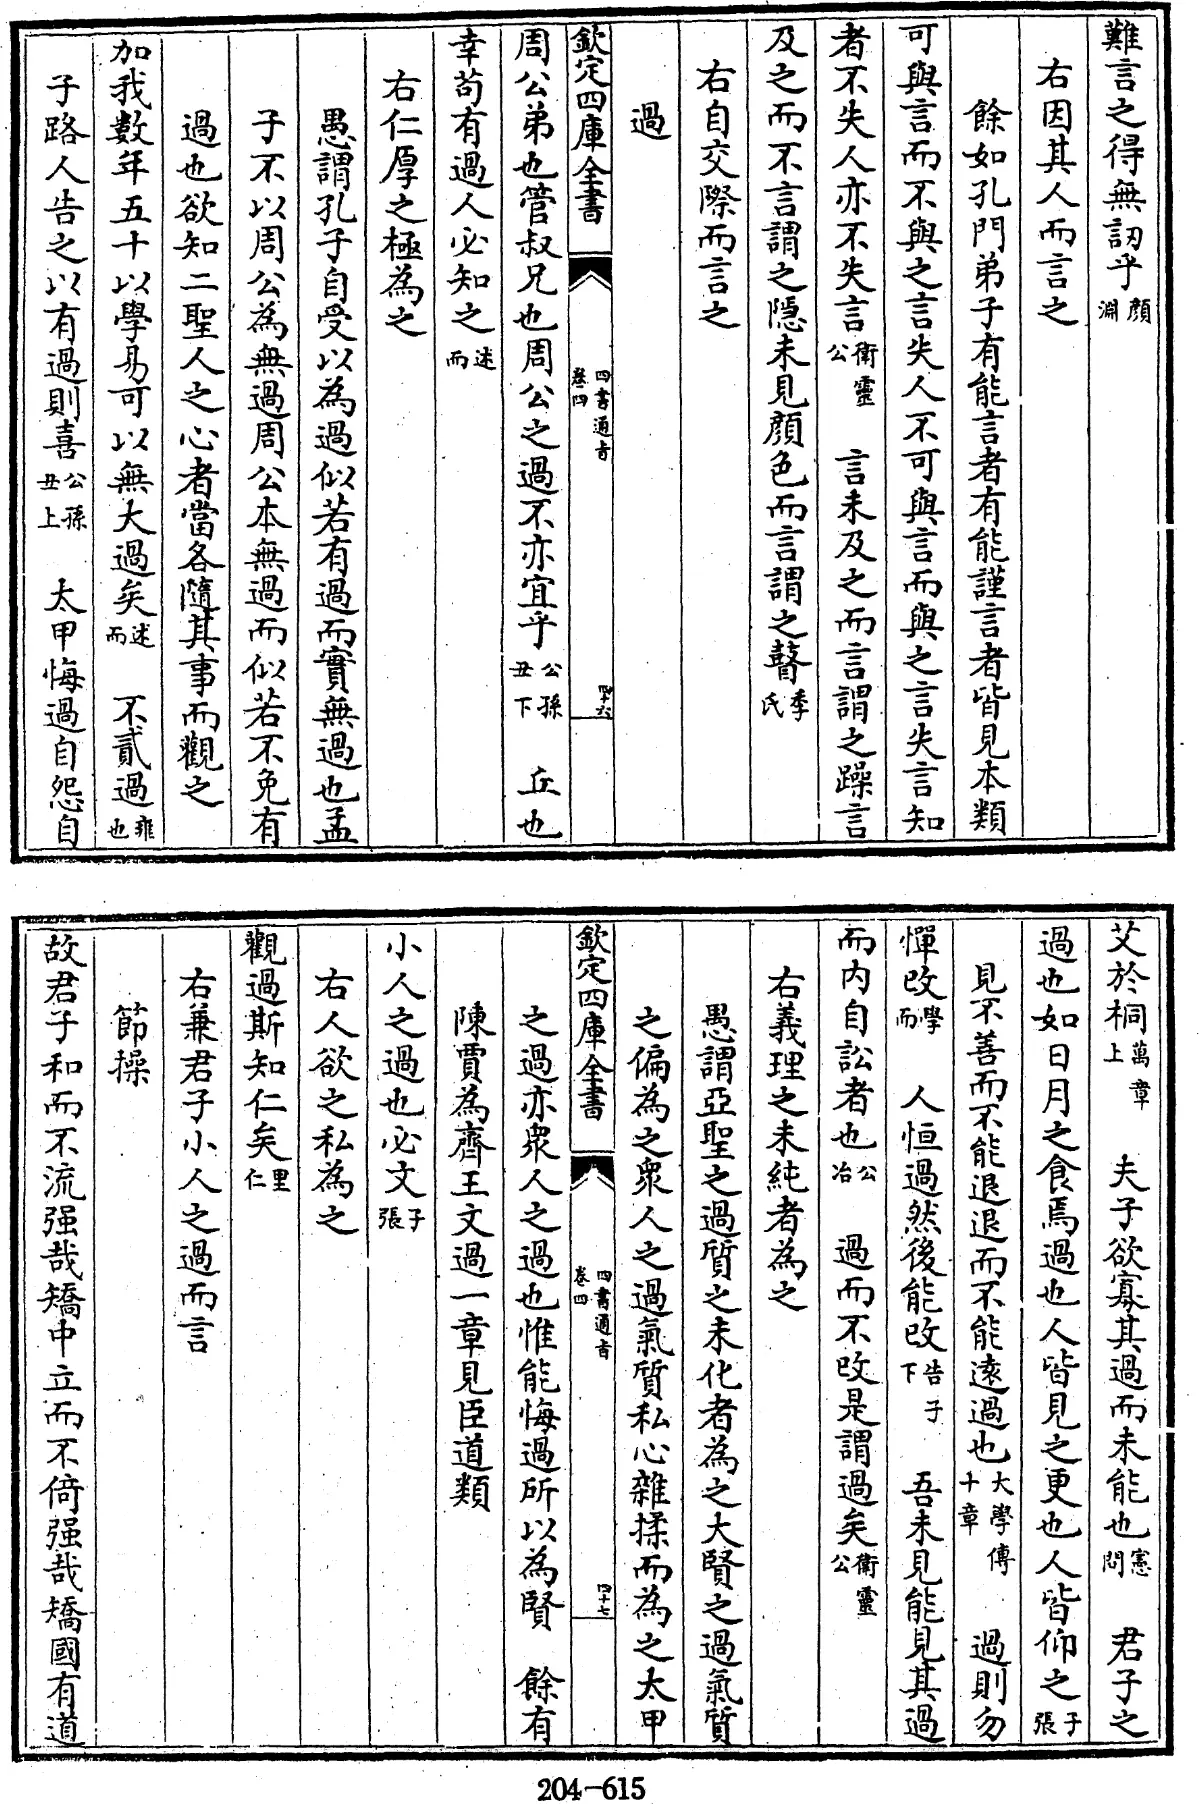 難言之得無訒乎顏淵
右因其人而言之
餘如孔門弟子有能言者有能謹言者皆見本類
可與言而不與之言失人不可與言而與之言失言知
者不失人亦不失言衛靈公 言未及之而言謂之躁言
及之而不言謂之隱未見顔色而言謂之瞽季氏
右自交際而言之
過
欽定四庫全書 四書通旨 卷四 四十六
周公弟也管叔兄也周公之過不亦宜乎公孫丑下 丘也
幸苟有過人必知之述而
右仁厚之極為之
愚謂孔子自受以為過似若有過而實無過也孟
子不以周公為無過周公本無過而似若不免有
過也欲知二聖人之心者當各隨其事而觀之
加我數年五十以學易可以無大過矣述而 不貳過雍也
子路人告之以有過則喜公孫丑上 太甲悔過自怨自
艾於桐萬章上 夫子欲寡其過而未能也憲問 君子之
過也如日月之食焉過也人皆見之更也人皆仰之子張
見不善而不能退退而不能遠過也大學傳十章 過則勿
憚改學而 人恒過然後能改告子下 吾未見能見其過
而内自訟者也公冶 過而不改是謂過矣衛靈公
右義理之未純者為之
愚謂亞聖之過質之未化者為之大賢之過氣質
之偏為之衆人之過氣質私心雜揉而為之太甲
欽定四庫全書 四書通旨 卷四 四十七
之過亦衆人之過也惟能悔過所以為賢 餘有
陳賈為齊王文過一章見臣道類
小人之過也必文子張
右人欲之私為之
觀過斯知仁矣里仁
右兼君子小人之過而言
節操
故君子和而不流强哉矯中立而不倚强哉矯國有道
204-615